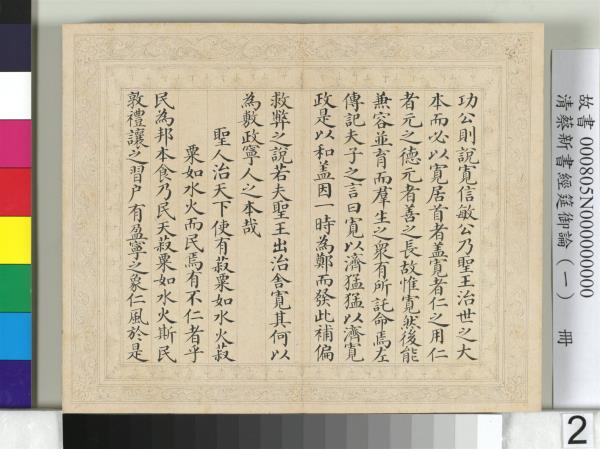 功公則說寬信敏公乃聖王治世之大
本而必以寬居首者蓋寬者仁之用仁
者元之德元者善之長故惟寬然後能
兼容並育而羣生之衆有所託命焉左
傳記夫子之言曰寬以濟猛猛以濟寬
政是以和蓋因一時為鄭而發此補偏
救弊之說若夫聖王出治舍寬其何以
為敷政寧人之本哉
聖人治天下使有菽粟如水火菽
粟如水火而民焉有不仁者乎
民為邦本食乃民天菽粟如水火斯民
敦禮讓之習戶有盈寧之象仁風於是
故書 000805N000000000
清蔡新書經筵御論(一) 冊
2